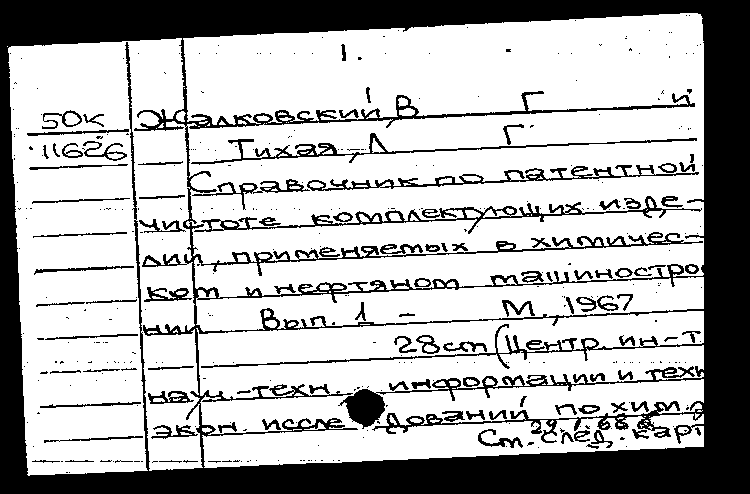 1.
50к Жалковский, В Г и
11626 Тихая, Л Г
Справочник по патентной
чистоте комплектующих изде-
лий, применяемых в химичес-
ком и нефтяном машинострое
нии Вып. 1 - М., 1967
28cm (Центр. ин-т
науч.-техн. информации и техн
экон. исследований по хим.
Cm. след. карт